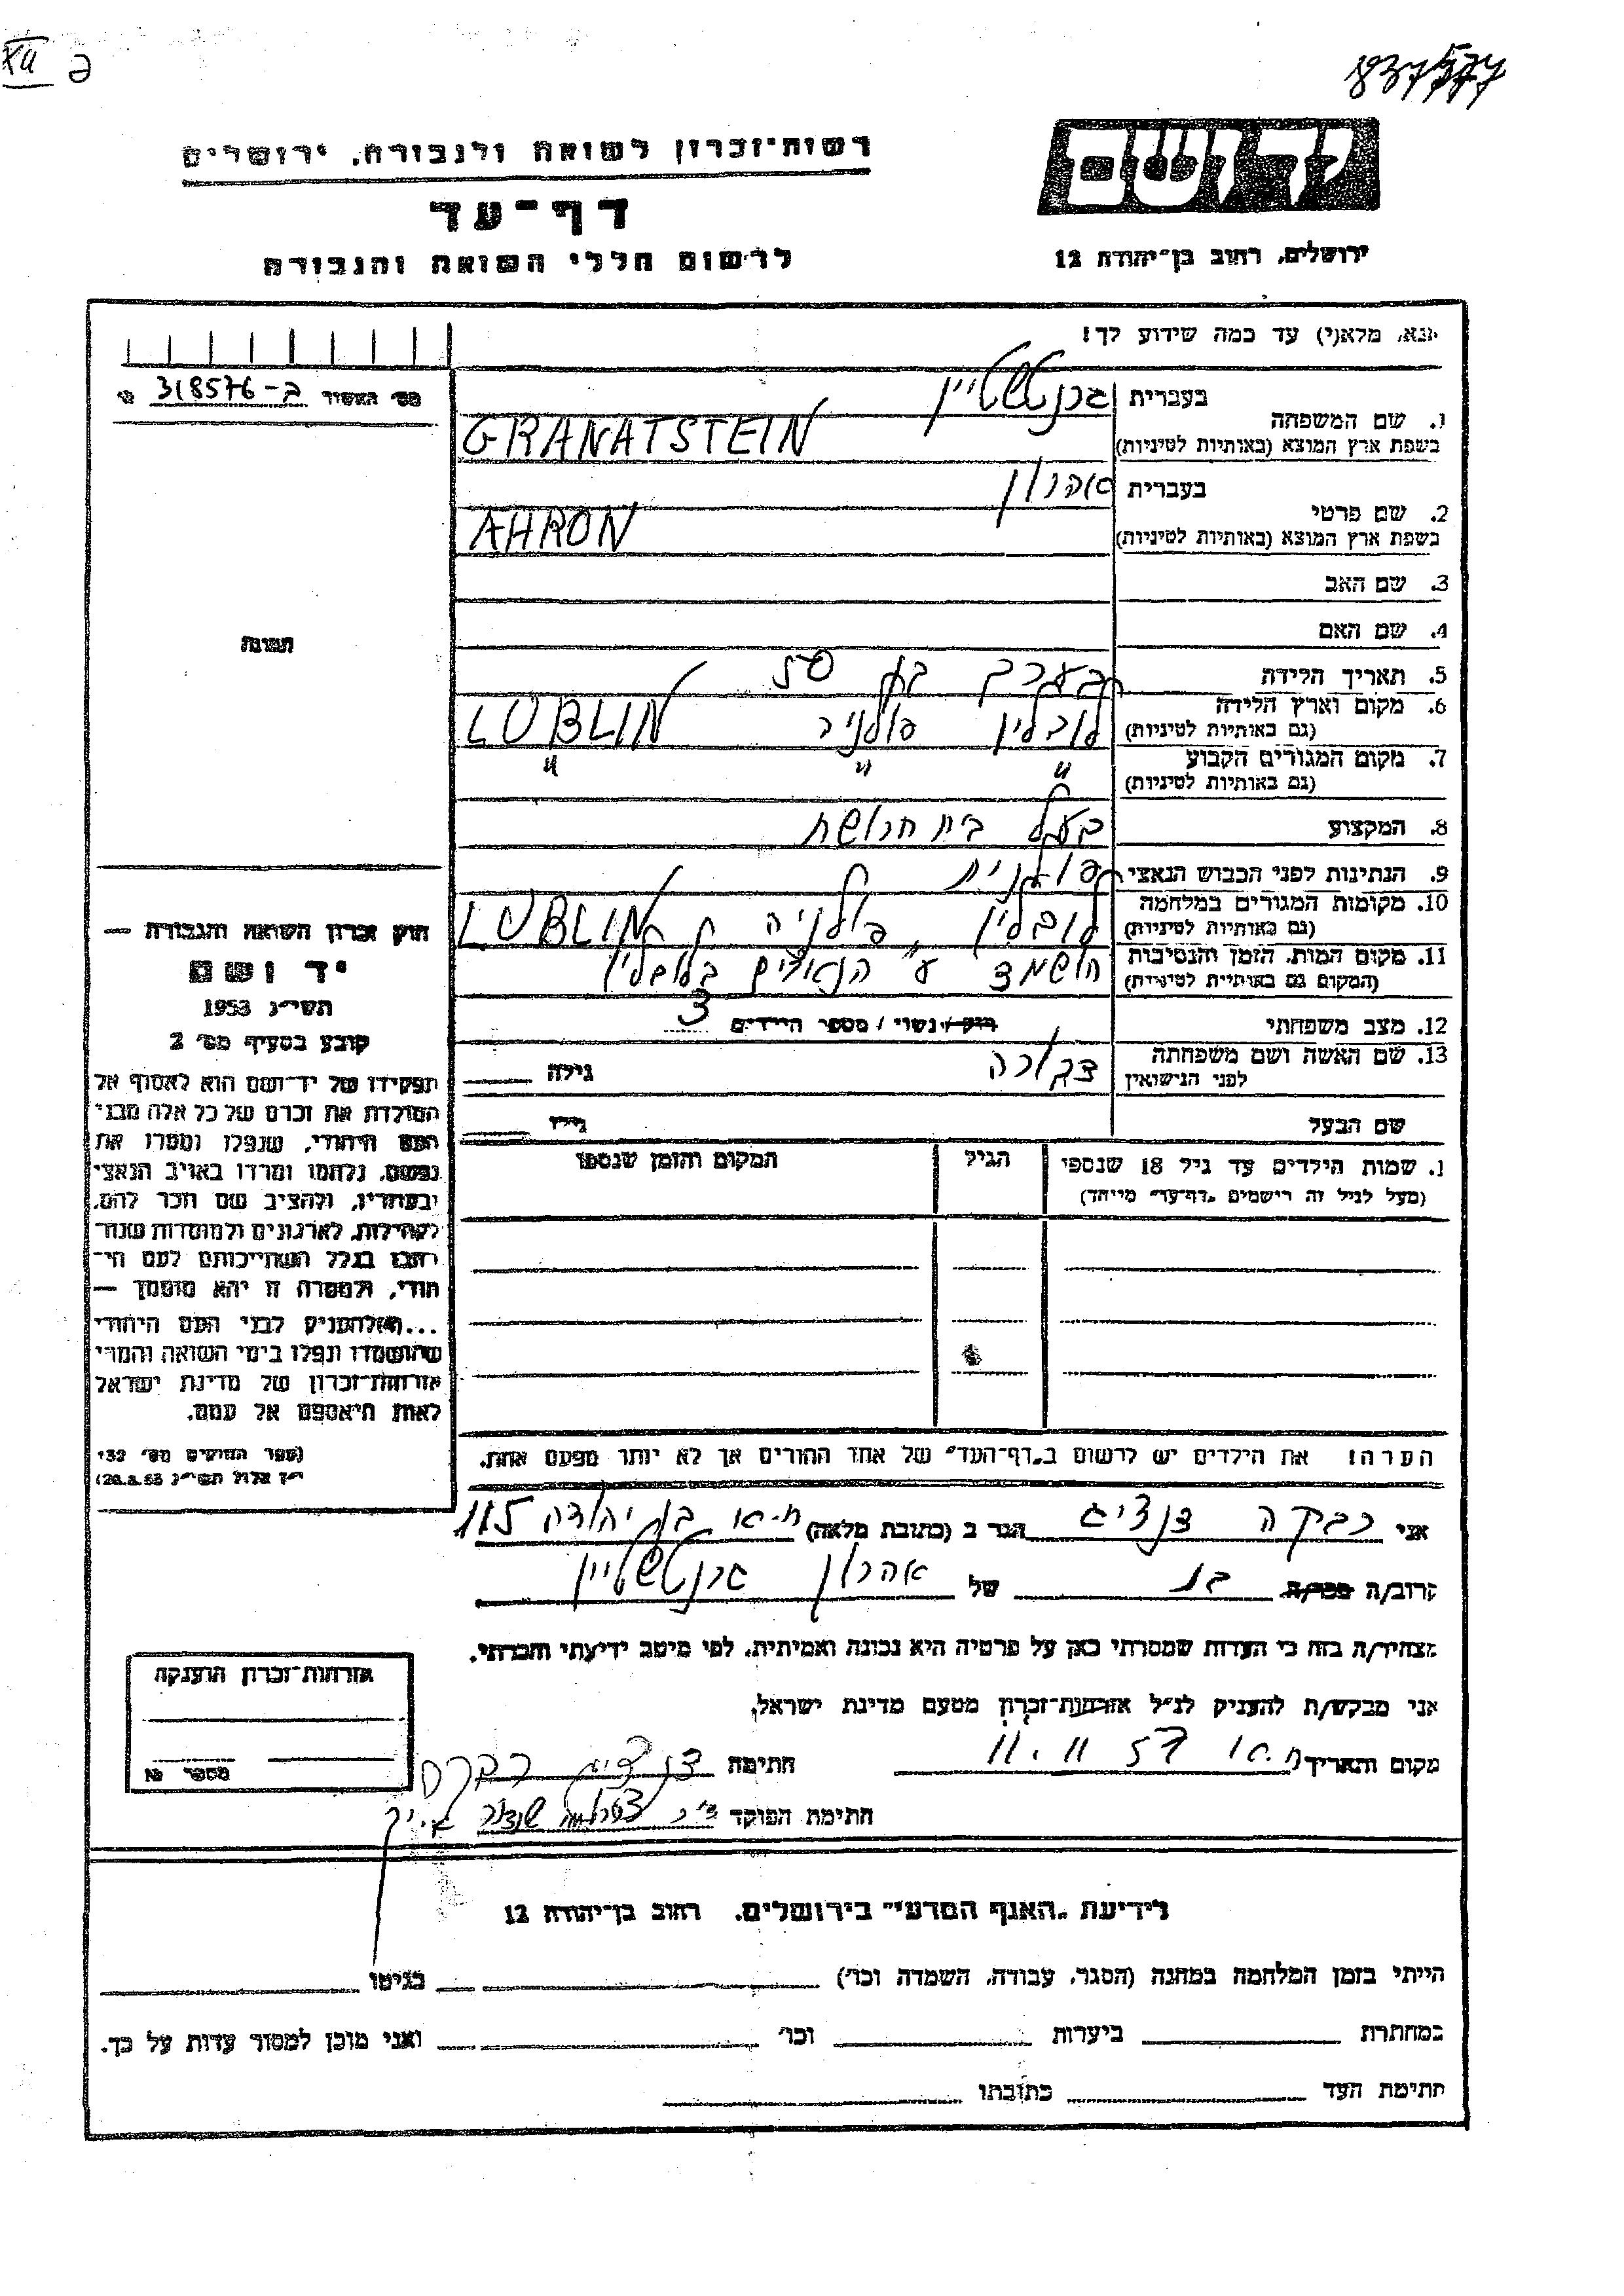 837577
רשות-זכרון לשואה ולגבורה, ירושלים
דף-עד
לרשום חללי השואה והגבורה
יד ושם
ירושלים, רחוב בן-יהודה 12
נא, מלא(י) עד כמה שידוע לך!
מס׳ האשור ב-318576
1. שם המשפחה בעברית גרנטשטיין
בשפת ארץ המוצא (באותיות לטיניות) GRANATSTEIN
2. שם פרטי בעברית אהרון
בשפת ארץ המוצא (באותיות לטיניות) AHRON
3. שם האב
4. שם האם
תמונה
5. תאריך הלידה בערך בן 50
6. מקום וארץ הלידה (גם באותיות לטיניות) לובלין פולניה LUBLIN
7. מקום המגורים הקבוע (גם באותיות לטיניות) " " "
8. המקצוע בעל בית חרושת
9. הנתינות לפני הכבוש הנאצי פולנית
10. מקומות המגורים במלחמה (גם באותיות לטיניות) לובלין פולניה LUBLIN
11. מקום המות, הזמן והנסיבות (המקום גם באותיות לטיניות) הושמד ע"י הנאצים בלובלין
12. מצב משפחתי רוק/ נשוי / מספר הילדים 3
13. שם האשה ושם משפחתה לפני הנישואין דבורה גילה
שם הבעל גילו
1. שמות הילדים עד גיל 18 שנספו הגיל המקום והזמן שנספו
(מעל לגיל זה רישמים "דף-עד" מיוחד)
חוק זכרון השואה והגבורה —
יד ושם
תשי״ג 1953
קובע בסעיף מס׳ 2
תפקידו של יד-ושם הוא לאסוף אל
המולדת את זכרם של כל אלה מבני
העם היהודי, שנפלו ומסרו את
נפשם, נלחמו ומרדו באויב הנאצי
ובעוזריו, ולהציב שם וזכר להם,
לקהילות, לארגונים ולמוסדות שנח־
רבו בגלל השתייכותם לעם הי־
הודי, ולמטרה זו יהא מוסמך —
...להעניק לבני העם היהודי
שהושמדו ונפלו בימי השואה והמרי
אזרחות-זכרון של מדינת ישראל
לאות היאספם אל עמם.
(ספר החוקים מס׳ 132
י״ז אלול תשי״ג 28.8.53)
הערה! את הילדים יש לרשום ב"דף-העד" של אחד ההורים אך לא יותר מפעם אחת.
אני רבקה דנציג הגר ב (כתובת מלאה) ת.א. בן יהודה 115
קרוב/ה מכר/ה בת של אהרון גרנטשטיין
מצהיר/ה בזה כי העדות שמסרתי כאן על פרטיה היא נכונה ואמיתית, לפי מיטב ידיעתי והכרתי.
אני מבקש/ת להעניק לנ״ל אזרחות-זכרון מטעם מדינת ישראל.
מקום והתאריך ת.א. 11.11.57 חתימה דנציג רבקה
חתימת הפוקד
אזרחות-זכרון הוענקה
מספר
לידיעת "האגף המדעי" בירושלים, רחוב בן-יהודה 12
הייתי בזמן המלחמה במחנה (הסגר, עבודה, השמדה וכו׳) בגיטו
במחתרת ביערות וכו׳ ואני מוכן למסור עדות על כך.
חתימת העד כתובתו